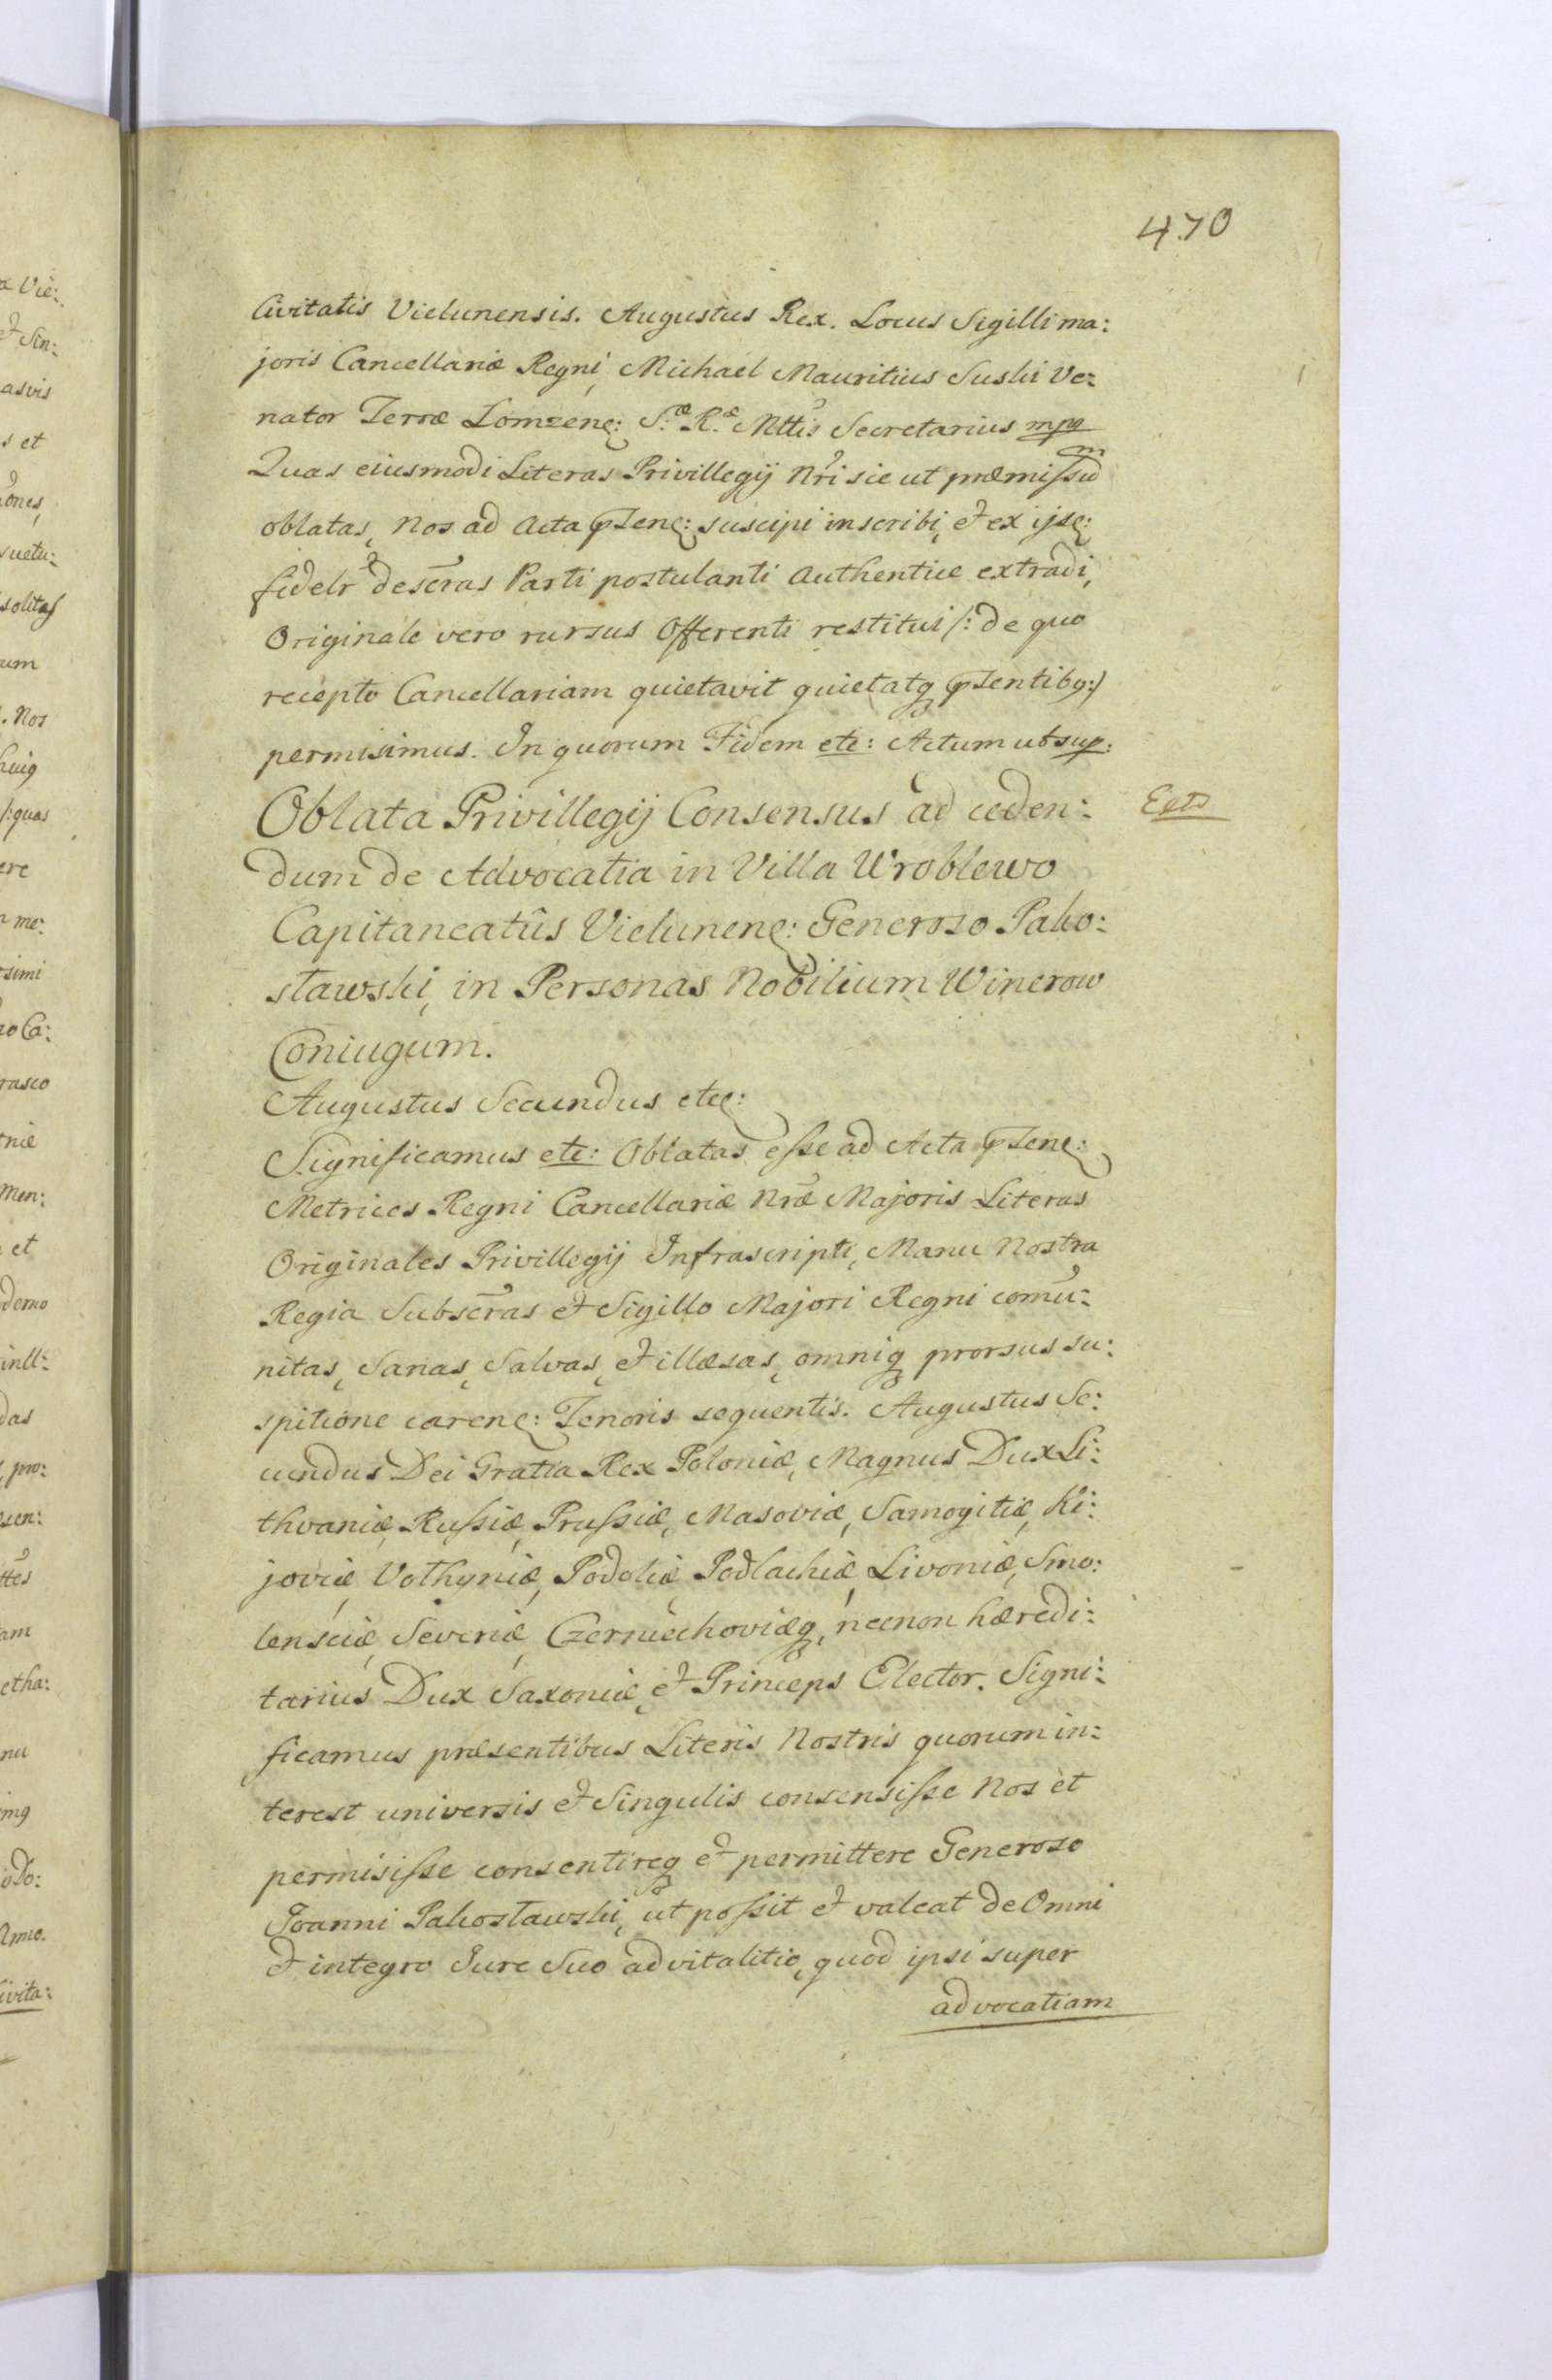 470
Civitatis Vielunensis. Augustus Rex. Locus Sigilli ma:
joris Cancellariæ Regni, Michael Mauritius Suski Ve:
nator Terræ Lomzenę: S.æ R.æ Mttis Secretarius mpp
Quas eiusmodi Literas Privillegij Nri sic ut præmissũ
oblatas, Nos ad Acta pŢenę: suscipi inscribi, et ex ijsę:
fidelr descras Parti postulanti Authentice extradi,
Originale vero rursus Offerenti restitui /: de quo
recepto Cancellariam quietavit quietatq pŢentibq:/
permisimus. In quorum Fidem etc: Actum ut sup:
Oblata Privillegij Consensus ad ceden:
Exto
dum de Advocatia in Villa Wroblewo
Capitaneatûs Vielunenę: Generoso Pako:
sławski, in Personas Nobilium Winerow
Coniugum.
Augustus Secundus etcę:
Significamus etc: Oblatas esse ad Acta pŢenę:
Metrices Regni Cancellariæ Nræ Majoris Literas
Originales Privillegij Infrascripti, Manu Nostra
Regia Subscras et Sigillo Majori Regni comu:
nitas, Sanas, Salvas, et illæsas, omniq prorsus su:
spitione carenę: Tenoris sequentis. Augustus Se:
cundus Dei Gratia Rex Poloniæ, Magnus Dux Li:
thvaniæ, Russiæ, Prussiæ, Masoviæ, Samogitiæ, Ki:
joviæ, Vołhyniæ, Podoliæ, Podlachiæ, Livoniæ, Smo:
lensciæ, Severiæ, Czerniechoviæq, necnon hæredi:
tarius Dux Saxoniæ, et Princeps Elector. Signi:
ficamus præsentibus Literis Nostris quorum in:
terest universis et Singulis consensisse Nos et
permisisse consentireq et permittere Generoso
Joanni Pakosławski, ut possit et valeat de Omni
et integro Jure Suo advitalitio, quod ipsi super
advocatiam